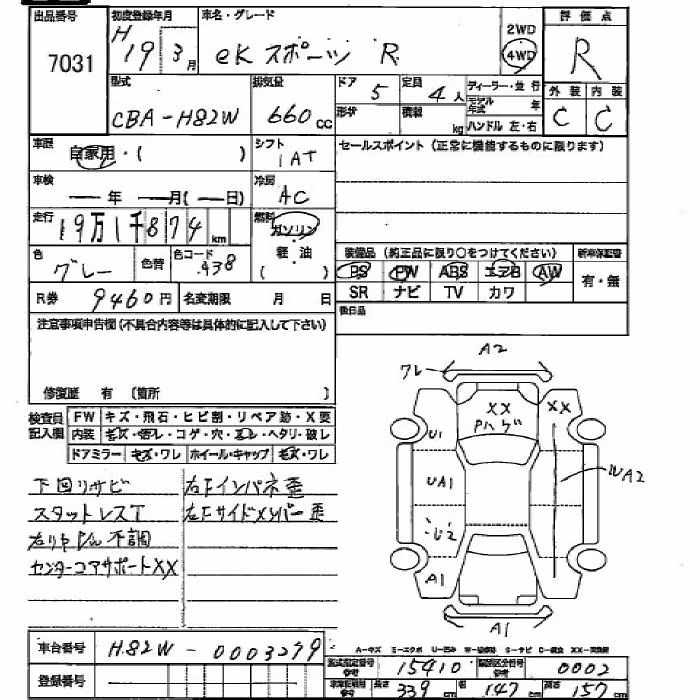 出品番号 初度登録年月 車名・グレード 評価点
7031 H19 3月 eK スポーツ R 2WD 4WD R
型式 排気量 ドア 5 定員 4人 ディーラー・並行 外装 内装
CBA-H82W 660cc 形状 積載 kg モデル年式 年 C C
ハンドル 左・右
車歴 自家用・( ) シフト 1AT セールスポイント (正常に機能するものに限ります)
車検 年 月( 日) 冷房 AC
走行 19万1千874km 燃料 ガソリン
軽・油
( )
色 グレー 色替 色コード 438
装備品 (純正品に限り○をつけてください) 新車保証書
PS PW ABS エアB AW 有・無
SR ナビ TV カワ
R券 9460円 名変期限 月 日
後日品
注意事項申告欄(不具合内容等は具体的に記入して下さい)
修復歴 有 〔箇所 〕
検査員記入欄 FW キズ・飛石・ヒビ割・リペア跡・X要
内装 キズ・汚レ・コゲ・穴・ヌレ・ヘタリ・破レ
ドアミラー キズ・ワレ ホイール・キャップ キズ・ワレ
下回リサビ 右Fインパネ歪
スタットレスT 左Fサイドメンバー歪
不調
センターコアサポートXX
A2
ワレ
XX
Pハゲ
XX
U1
UA1
WA2
A1
A1
車台番号 H82W-0003279
登録番号
A-キズ E-エクボ U-凹み W-補修跡 S-サビ C-腐食 XX-交換済
型式指定番号 参考 15410 類別区分番号 参考 0002
参考 長さ 339cm 幅 147cm 高さ 157cm